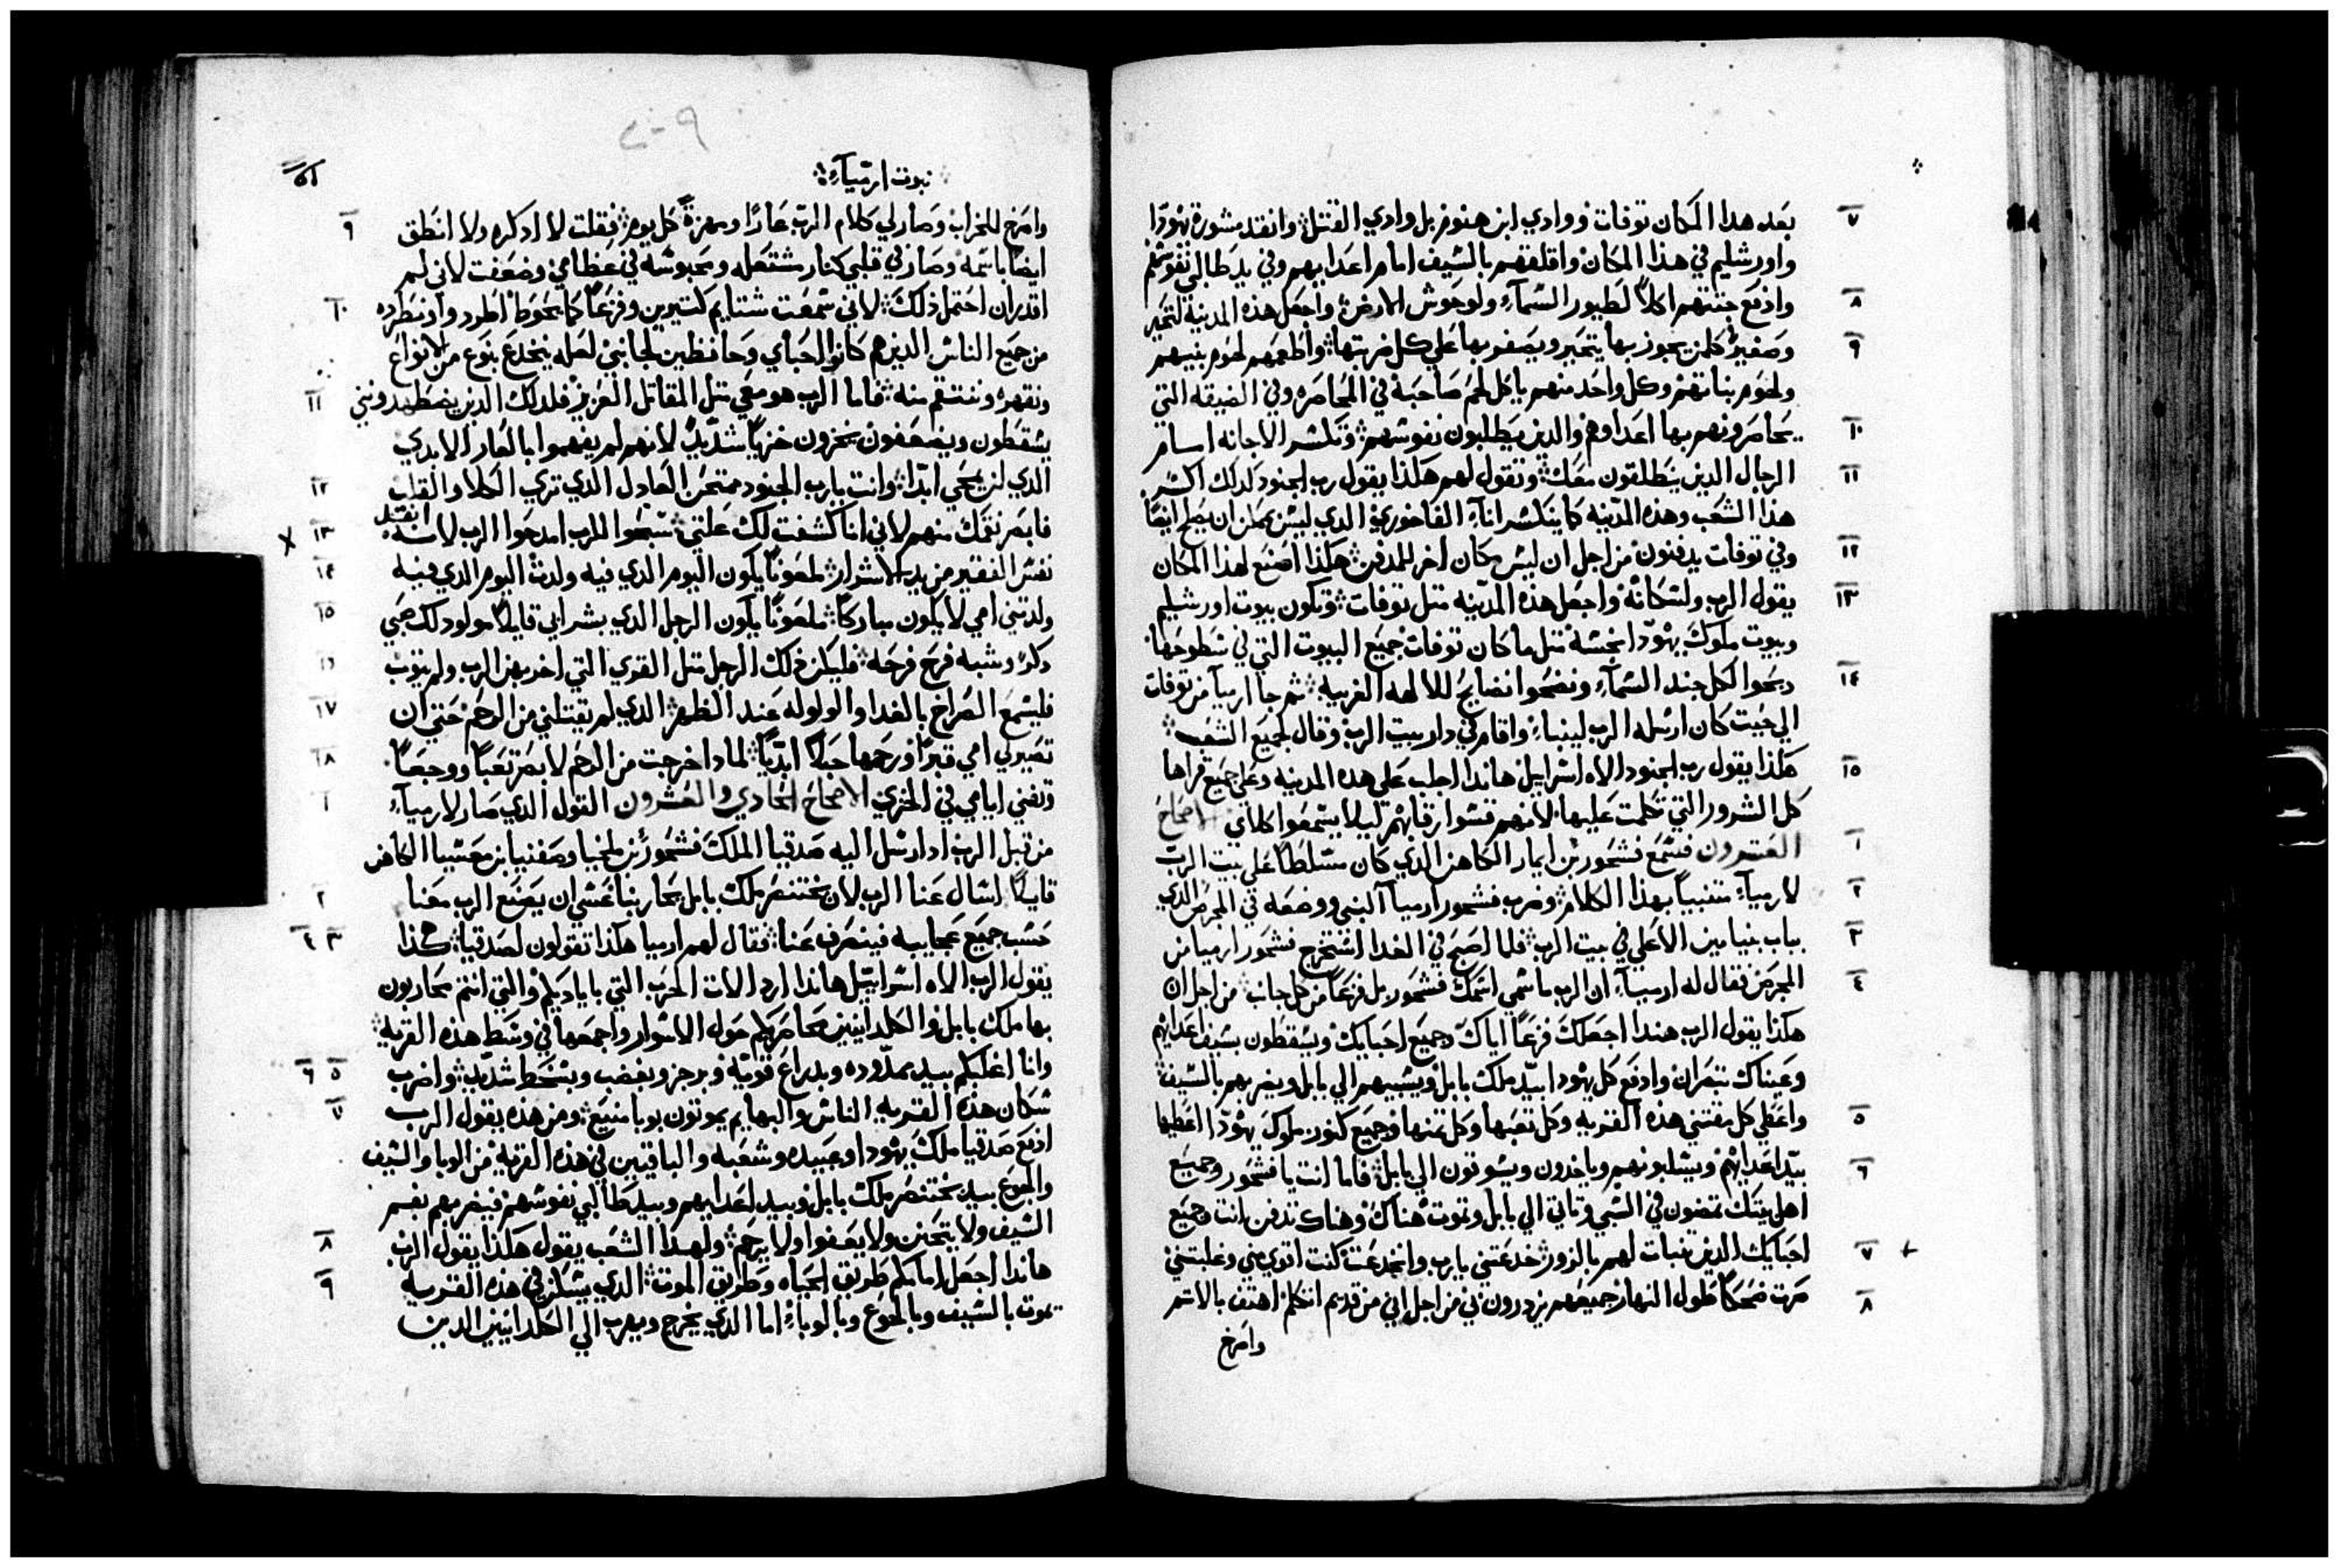 ٧ بعد هذا المكان توفات ووادي ابن هنوم بل وادي القتل وانقد مشورة يهودا
واورشليم في هذا المكان واقلقهم بالسيف امام اعدايهم وفي يد طالبي نفوسهم
٨ وادفع جتتهم اكلاً لطيور السمآء ولوحوش الارض واجعل هذه المدينة لتحير
٩ وصفير كلمن يجوز بها يتحير ويصفر بها علي كل ضربتها واطعمهم لحوم بنيهم
ولحوم بناتهم وكل واحد منهم ياكل لحم صاحبه في المحاصره وفي الضيقه التي
١٠ يحاصرونهم بها اعداوهم والدين يطلبون نفوسهم وتكسر الاجانه امام
١١ الرجال الدين ينطلقون معك وتقول لهم هكذا يقول رب الجنود كدلك اكسر
هذا الشعب وهذه المدينه كما ينكسر انآء الفاخوري الدي ليس يمكن ان يصلح ايضاً
١٢ وفي توفات يدفنون من اجل ان ليس مكان اخر للمدفن هكذا اصنع لهذا المكان
١٣ يقول الرب ولسكانه واجعل هذه المدينه متل توفات وتكون بيوت اورشليم
وبيوت ملوك يهودا نجسة متل ما كان توفات جميع البيوت التي في سطوحها
١٤ دبحوا لكل جند السمآء ونضحوا نضايح للالهه الغريبه ثم جا ارميآ من توفات
الي حيت كان ارسله الرب ليتنباء واقام في دار بيت الرب وقال لجميع الشعب
١٥ هكذا يقول رب الجنود الاه اسراييل هاندا اجلب علي هده المدينه وعلي جميع قراها
كل الشرور التي تكلمت عليها لانهم قسوا رقابهم ليلا يسمعوا كلامي الاصحاح
١ العشرون فسمع فشحور بن ايمار الكاهن الدي كان مسلطاً علي بيت الرب
٢ لارميآء متنبياً بهذا الكلام وضرب فشحور ارميآ النبي ووضعه في المجرض الدي
٣ بباب بنيامين الاعلي في بيت الرب فلما اصبح في الغدا استخرج فشحور ارميا من
٤ المجرض فقال له ارميآء ان الرب ما سمي اسمك فشحور بل فزعاً من كل جانب من اجل ان
هكذا يقول الرب هندا اجعلك فزعاً اياك وجميع احبايك ويسقطون بسيف اعدايهم
وعيناك تبصران وادفع كل يهودا بيد ملك بابل ويسبيهم الي بابل ويضربهم بالسيف
٥ واعطي كل مقتني هذه القريه وكل تعبها وكل تمنها وجميع كنوز ملوك يهودا اعطيها
٦ بيد اعدايهم ويسلبونهم وياخدون ويسوتون الي بابل فاما انت يا فشحور وجميع
اهل بيتك تمضون في السبي وتاتي الي بابل وتموت هناك وهناك تدفن انت وجميع
٧ احبايك الدين تنبات لهم بالزور خدعتني يارب وانخدعت كنت اقوي مني وغلبتني
٨ صرت ضحكاً طول النهار جميعهم يزدرون بي من اجل اني من قديم اتكلم اهتف بالاتم
واصرخ
٢٠٩
نبوت ارميآء
٩ واصرخ للخراب وصار لي كلام الرب عارًا ومهزة كل يوم فقلت لا ادكره ولا انطق
ايضاً باسمه وصار في قلبي كنار مشتعله ومحبوسه في عظامي وضعفت لاني لم
١٠ اقدر ان احتمل ذلك لاني سمعت شتايم كتيرين وفزعاً كما يحوط اطردوا ونطرده
من جميع الناس الدين هم كانوا احباي وحافظين لجانبي لعله ينخدع بنوع من الانواع
١١ ونقهره وننتقم منه فاما الرب هو معي متل المقاتل العزيز فلدلك الدين يضطهدونني
يسقطون ويضعفون يخزون خزياً شديدً لانهم لم يفهموا بالعار الابدي
١٢ الدي لن يمحي ابدًا وانت يارب الجنود ممتحن العادل الدي تري الكلا والقلب
١٣ فابصر نقمك منهم لاني انا كشفت لك علتي سبحوا للرب امدحوا الرب لانه انقد
١٤ نفس الفقير من يد الاشرار ملعوناً يكون اليوم الدي فيه ولدت اليوم الدي فيه
١٥ ولدتني امي لا يكون مباركاً ملعوناً يكون الرجل الدي بشر ابي قايلاً مولود لك صبي
١٦ دكر وشبه فرح فرحه فليكن ذلك الرجل متل القري التي اخربهن الرب ولم يتوب
١٧ فليسمع الصراخ بالغدا والولوله عند الظهر الدي لم يقتلني من الرحم حتي ان
١٨ تصير لي امي قبرًا ورحمها حبلاً ابديًا لمادا خرجت من الرحم لابصر تعباً ووجعاً
١ وتفني ايامي في الخزي الاصحاح الحادي والعشرون القول الدي صار لارميآء
من قبل الرب اد ارسل اليه صدقيا الملك فشحور بن ملخيا وصفنيا بن معسيا الكاهن
٢ قايلاً اسال عنا الرب لان بختنصر ملك بابل يحاربنا عسي ان يصنع الرب معنا
٣ ٤ حسب جميع عجايبه فينصرف عنا فقال لهم ارميا هكذا تقولون لصدقيا هكذا
يقول الرب الاه اسراييل هاندا ارد الات الحرب التي باياديكم والتي انتم تحاربون
بها ملك بابل والكلدانيين محاصريكم حول الاسوار واجمعها في وسط هذه القريه
٥ ٦ وانا اغلبكم بيد ممدوده وبدراع قويه وبرجز وبغضب وبسخط شديد واضرب
٧ سكان هذه القريه الناس والبهايم يموتون بوبا منيع ومن هذه يقول الرب
ادفع صدقيا ملك يهودا وعبيده وشعبه والباقيين في هذه القريه من الوبا والسيف
والجوع بيد بختنصر ملك بابل وبيد اعدايهم وبيد طالبي نفوسهم فيضربهم بفم
٨ السيف ولا يتحنن ولا يعفوا ولا يرحم ولهذا الشعب يقول هكذا يقول الرب
٩ هاندا اجعل امامكم طريق الحياه وطريق الموت الدي يسكن في هده القريه
يموت بالسيف وبالجوع وبالوباء اما الدي يخرج ويهرب الي الكلدانيين الدين